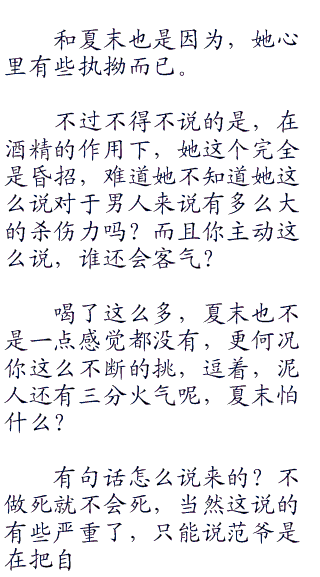 和夏末也是因为，她心
里有些执拗而已。
不过不得不说的是，在
酒精的作用下，她这个完全
是昏招，难道她不知道她这
么说对于男人来说有多么大
的杀伤力吗？而且你主动这
么说，谁还会客气？
喝了这么多，夏末也不
是一点感觉都没有，更何况
你这么不断的挑，逗着，泥
人还有三分火气呢，夏末怕
什么？
有句话怎么说来的？不
做死就不会死，当然这说的
有些严重了，只能说范爷是
在把自